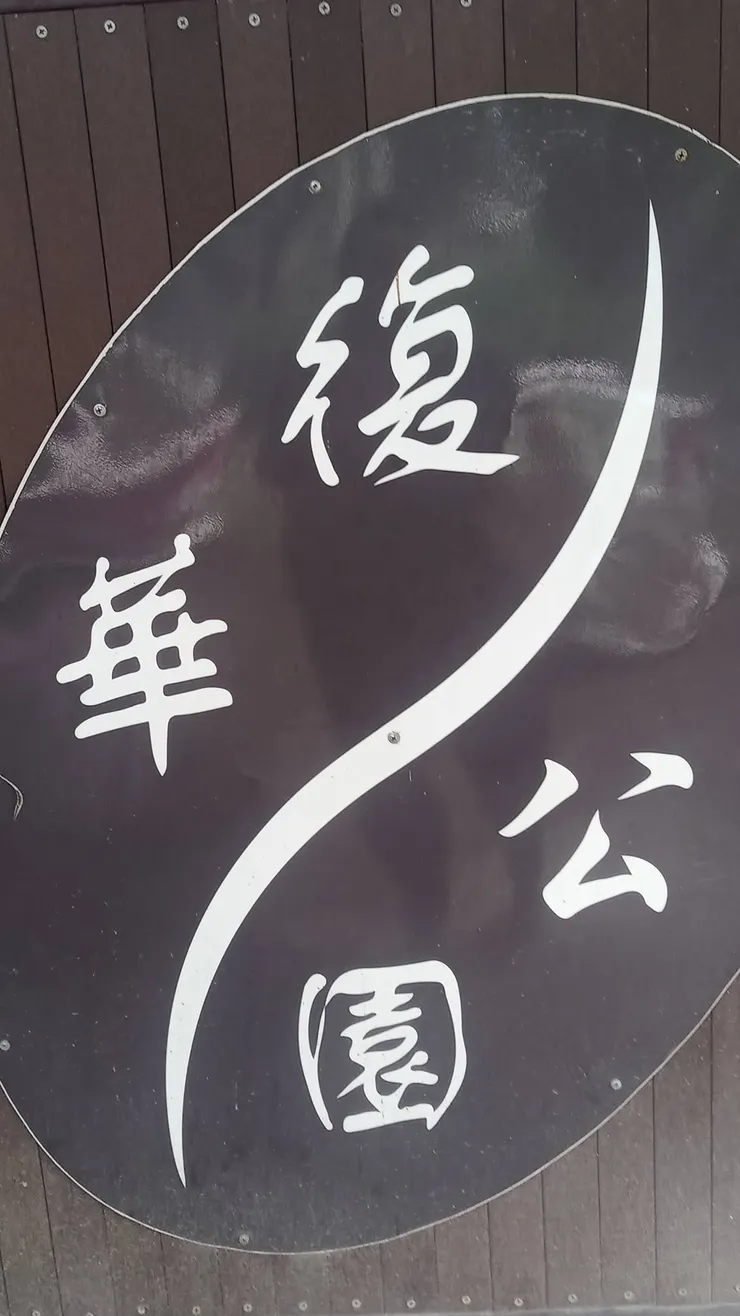 復華
公園